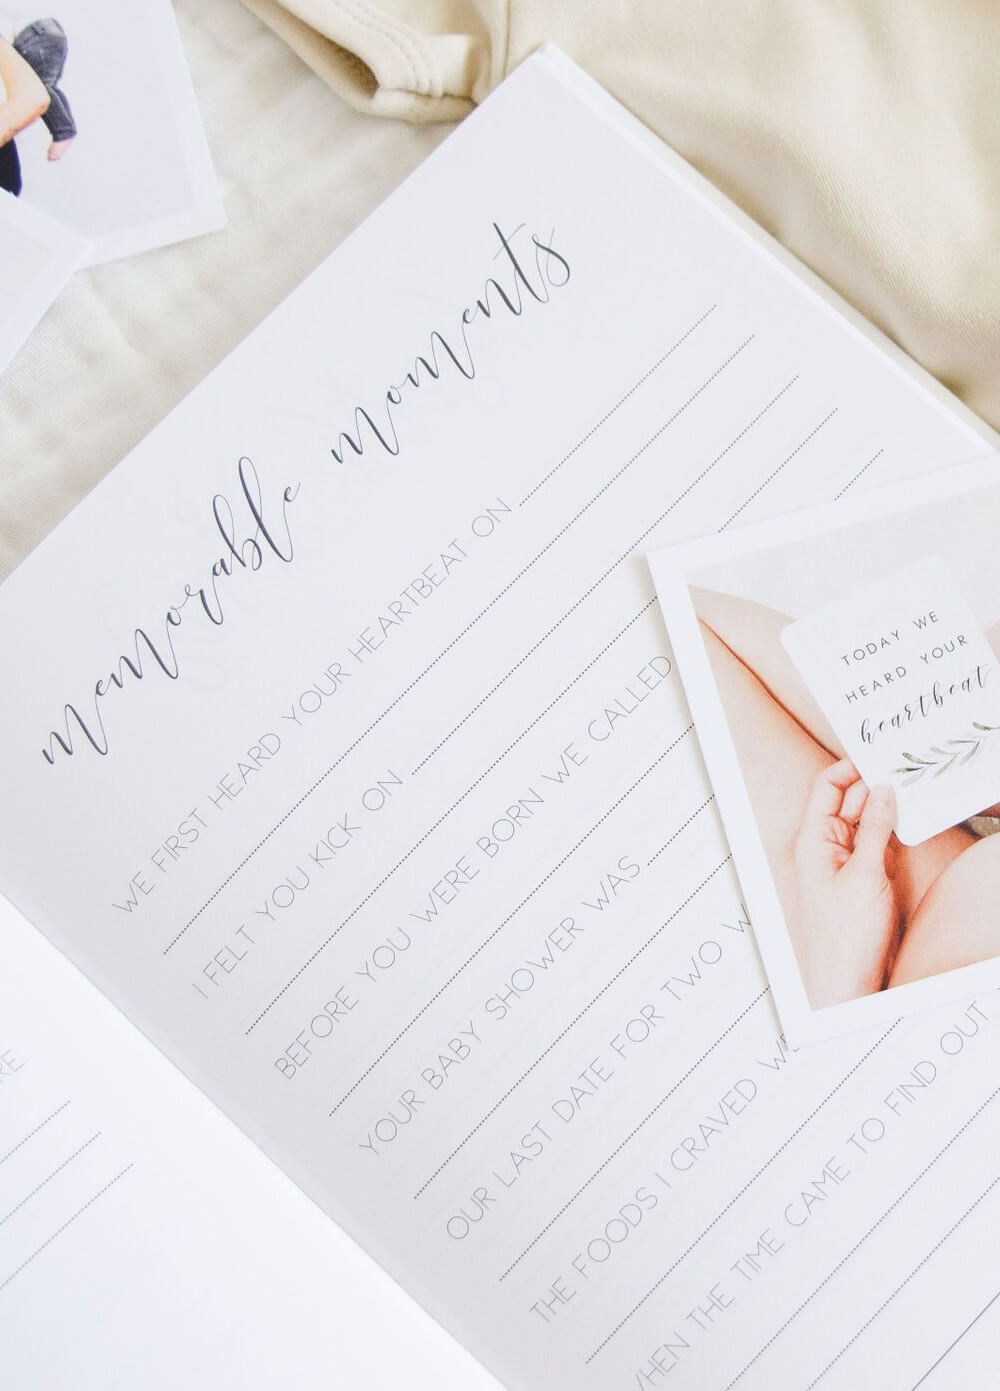 memorable moments
WE FIRST HEARD YOUR HEARTBEAT ON
I FELT YOU KICK ON
BEFORE YOU WERE BORN WE CALLED
YOUR BABY SHOWER WAS
OUR LAST DATE FOR TWO
THE FOODS I CRAVED
THE TIME CAME TO FIND OUT
TODAY WE
HEARD YOUR
heartbeat